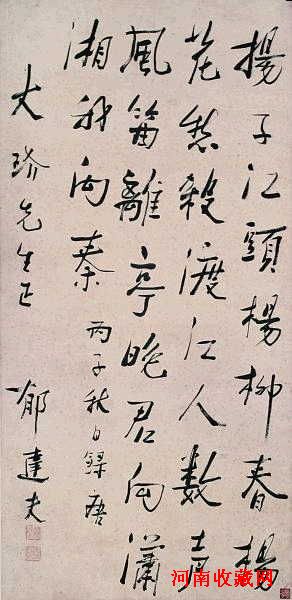 揚子江頭楊柳春楊
花愁殺渡江人數聲
風笛離亭晚君向瀟
湘我向秦
丙子秋日錄唐
大珎先生正
郁達夫
河南收藏网